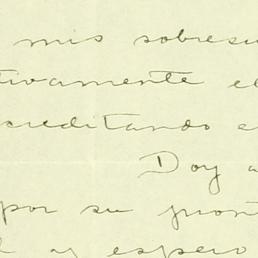 mis sobresu
tivamente el
creditando e
Doy a
por su pront
y espero